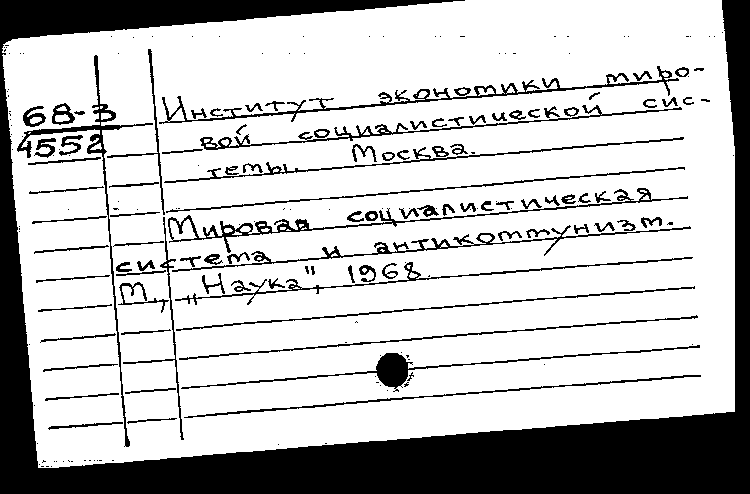 68-3
4552
Институт экономики миро-
вой социалистической сис-
темы. Москва.
Мировая социалистическая
система и антикоммунизм.
М., „Наука", 1968.